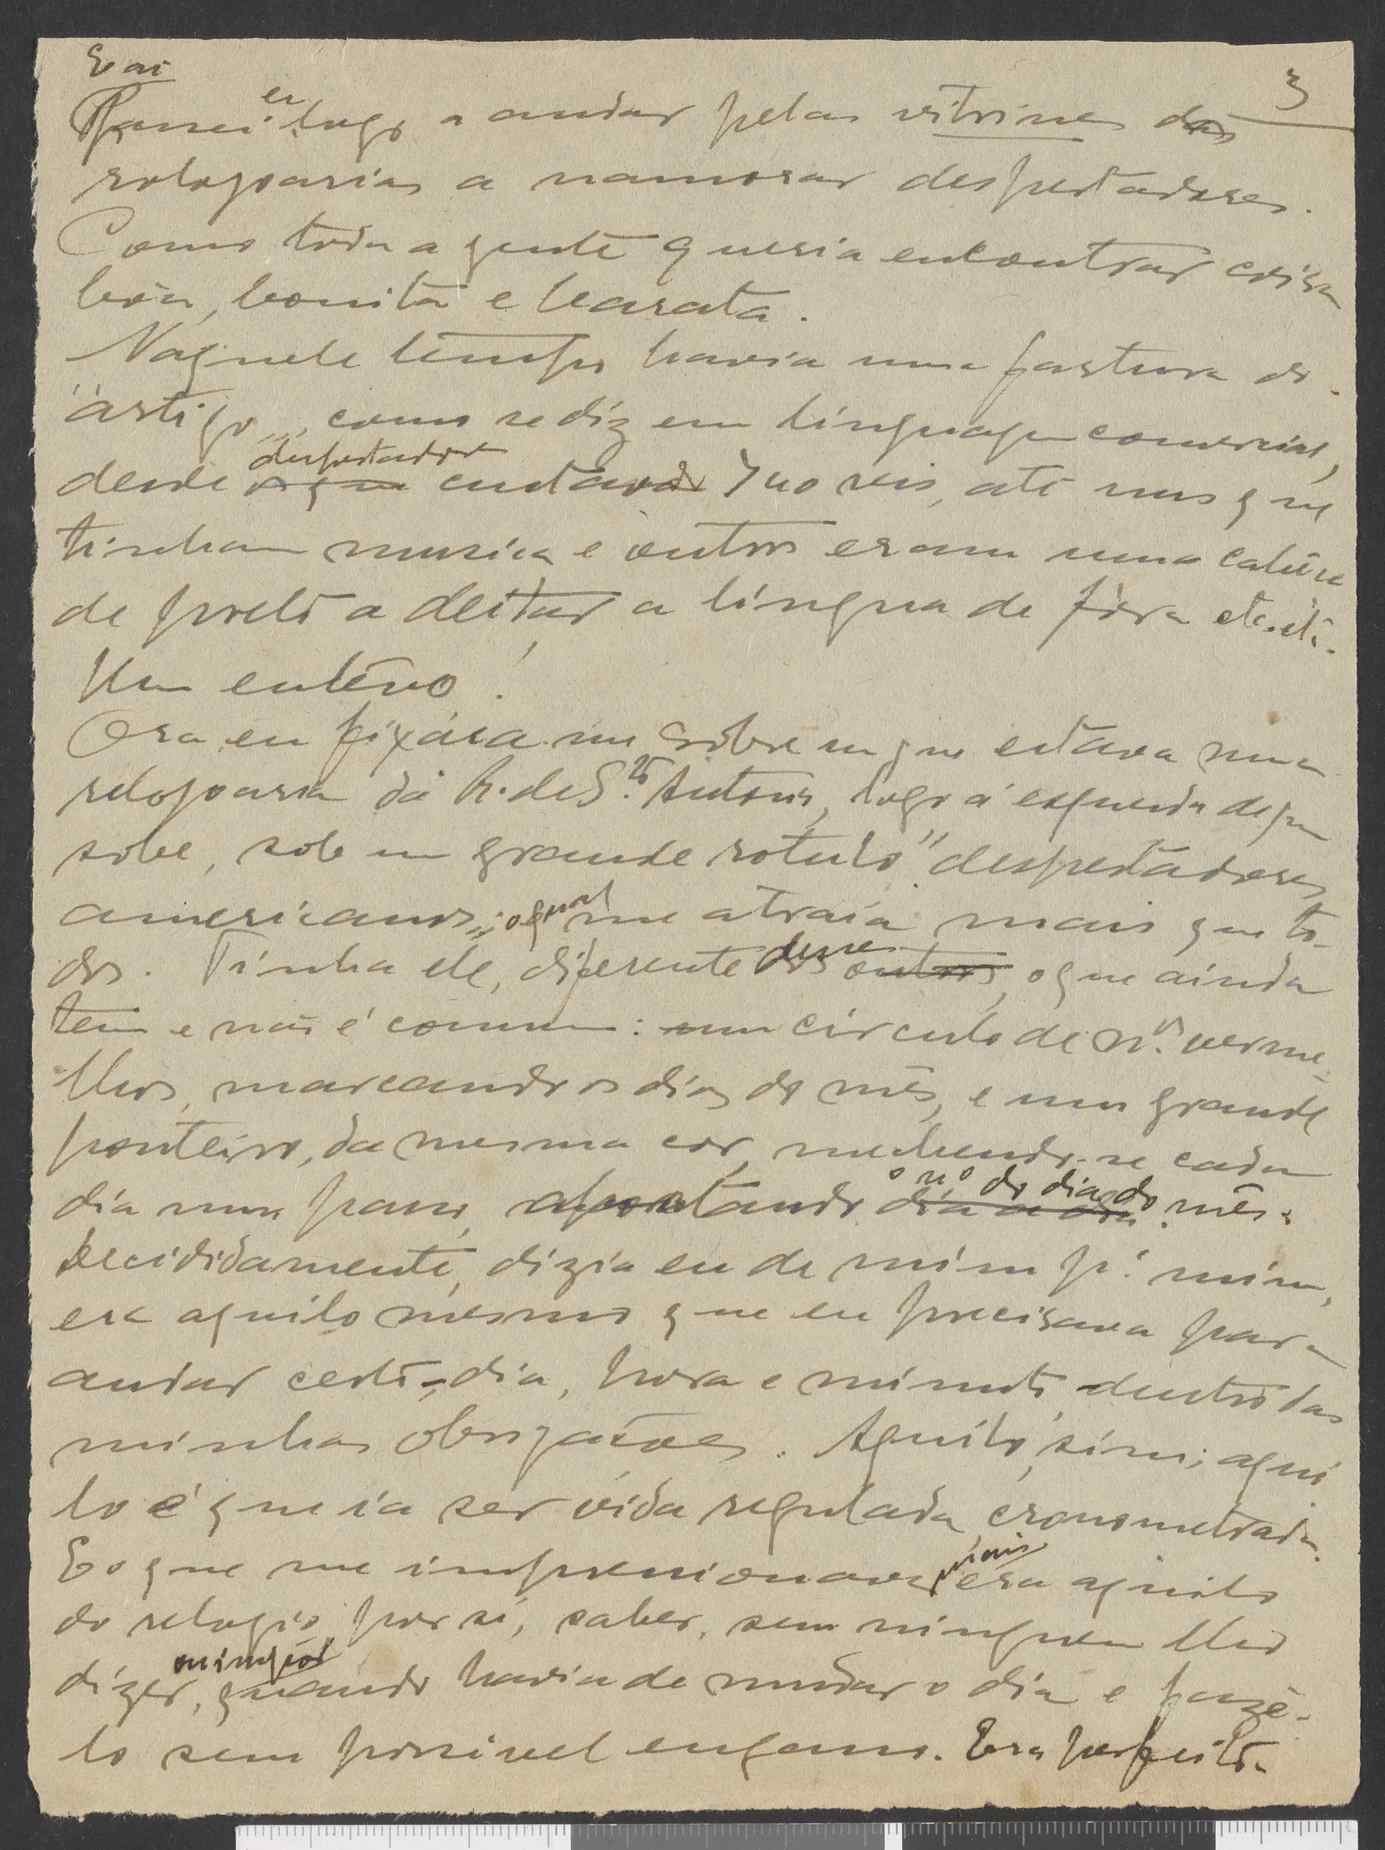 E aí
3
Passei eu logo a andar pelas vitrines das
relojoarias a namorar despertadores.
Como toda a gente queria encontrar coisa
bôa, bonita e barata.
Naquele tempo havia uma fartura do
"artigo", como se diz em linguagem comercial,
desde despertador custando 700 reis, até uns que
tinham musica e outros eram uma cabeça
de preto a deitar a língua de fóra etc. etc.
Um enlêvo!
Ora eu fixára-me sobre um que estava numa
relojoaria da R. de S.to Antonio, logo á esquerda de quem
sobe, sob um grande rotulo "despertadores
americanos"; o qual me atraía mais que to-
dos. Tinha ele, diferente dos outros, o que ainda
tem e não é comum: um círculo de n.os verme-
lhos, marcando os dias do mês, e um grande
ponteiro, da mesma cor, mechendo-se cada
dia um passo, apontando o nº do dia do mês.
Decididamente, dizia eu de mim p.a mim,
era aquilo mesmo que eu precisava para
andar certo, dia, hora e minuto, dentro das
minhas obrigações. Aquilo, sim; aqui
lo é que ia ser vida regulada, cronometrada.
E o que me impressionava mais era aquilo
do relogio, por si, saber, sem ninguem lho
dizer, ou impôr quando havia de mudar o dia e fazê-
lo sem possivel engano. Era perfeito.